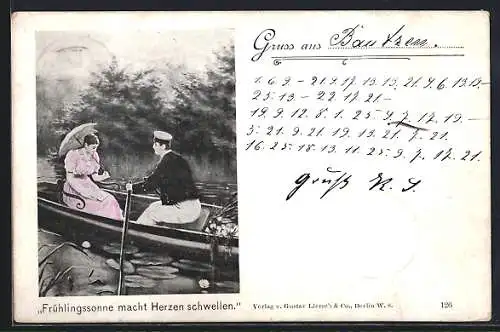 Gruss aus Bautzen.
1. 6. 9 - 21. 9. 17. 13. 13. 21. 9. 6. 13. 19.
25. 13. - 22. 17. 21. -
19. 9. 12. 8. 1. 25. 9. 7. 17. 19. -
5. 21. 9. 21. 19. 13. 21. 7. 21.
16. 25. 18. 13. 11. 25. 9. 7. 17. 21.
Gruß K. S.
„Frühlingssonne macht Herzen schwellen."
Verlag v. Gustav Liersch & Co., Berlin W. 8.
126